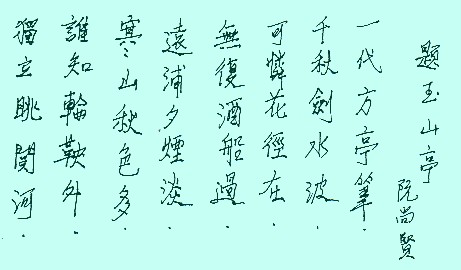 題玉山亭
阮尚賢
一代方亭筆．
千秋劍水波．
可憐花徑在．
無復酒船過．
遠浦夕煙淡．
寒山秋色多．
誰知輪鞅外．
獨立眺関河．